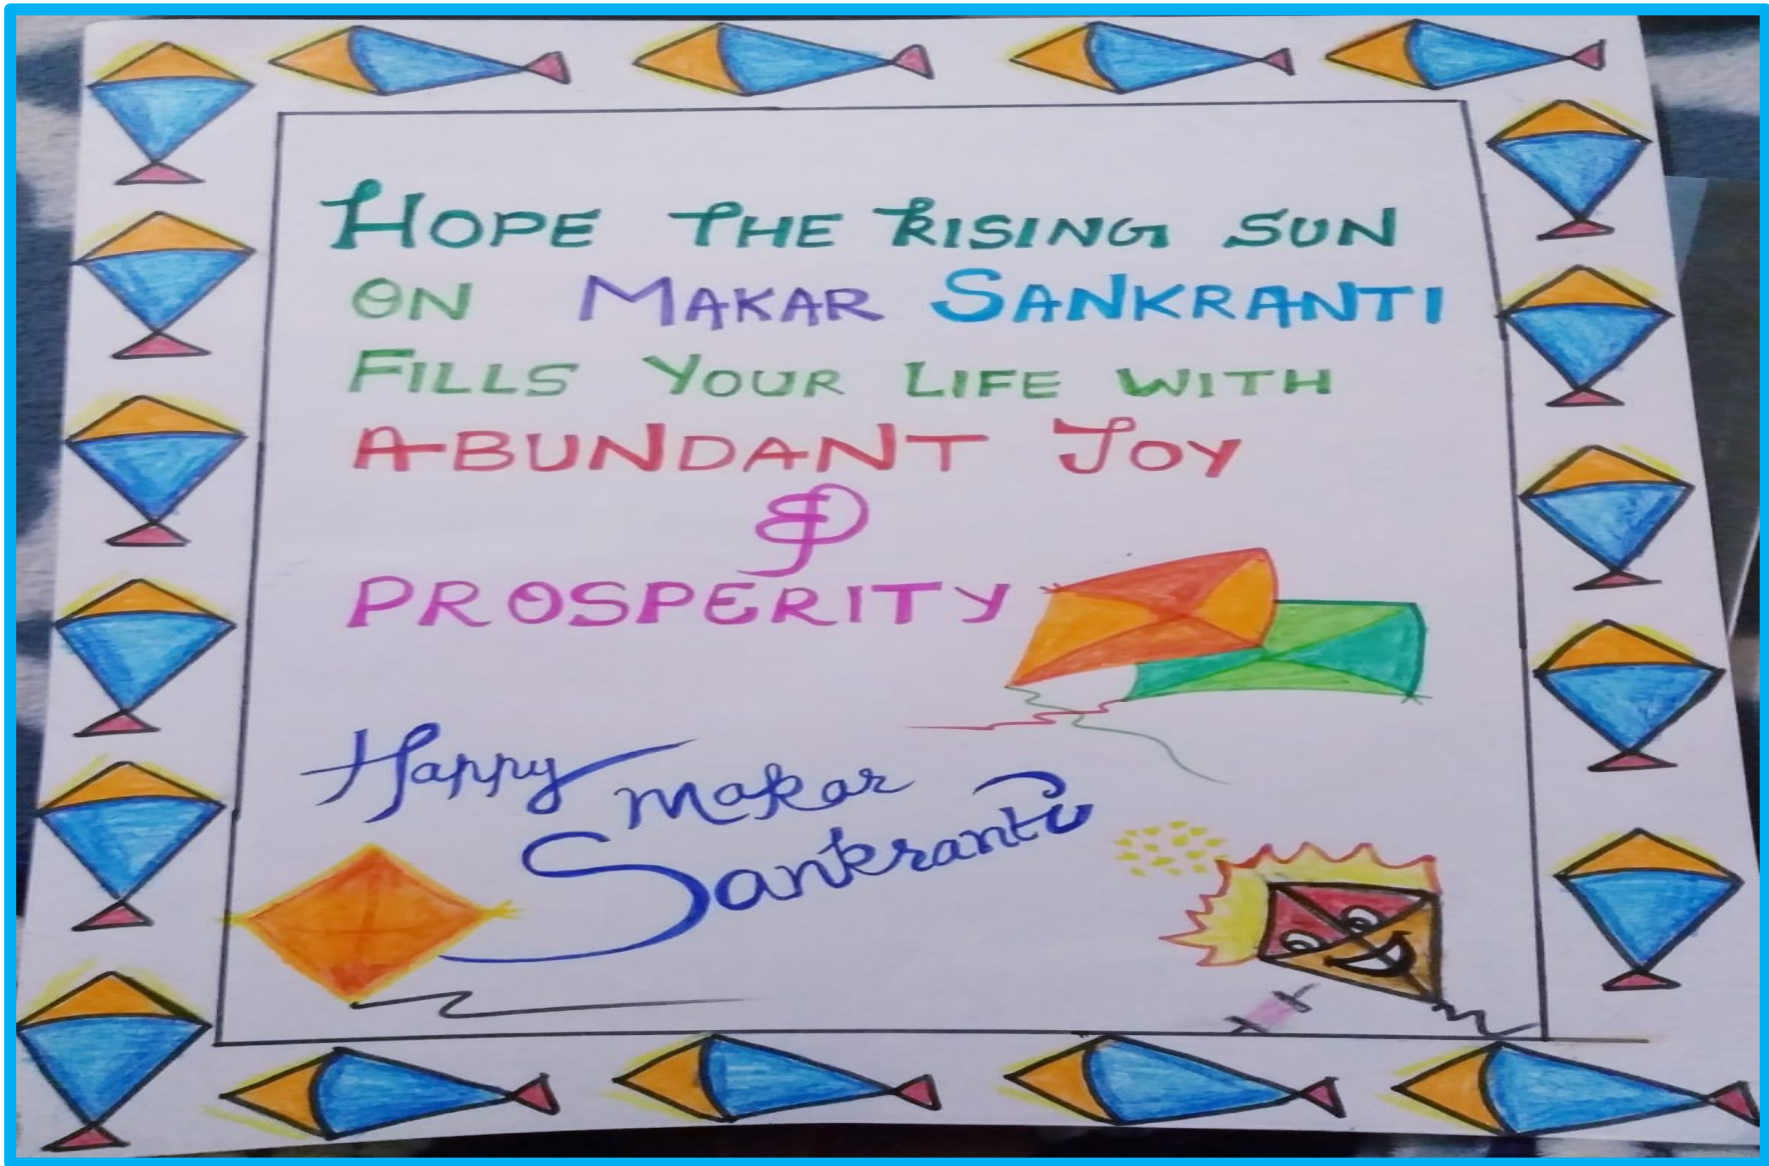 HOPE THE RISING SUN
ON MAKAR SANKRANTI
FILLS YOUR LIFE WITH
ABUNDANT JOY
&
PROSPERITY
Happy Makar
Sankranti